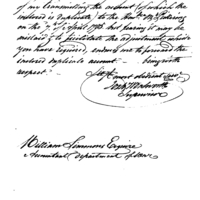 of my transmitting the account (of which the
inclosed is duplicate) to the Hon. McHenry
on the 7th of April 1798 but fearing it may be
mislaid & to facilitate the adjustment which
you have required, induces me to forward the
inclosed duplicate account being with
respect
Sir your most obedient servt
Supervisor
William Simmons Esquire
Accountant, department of War